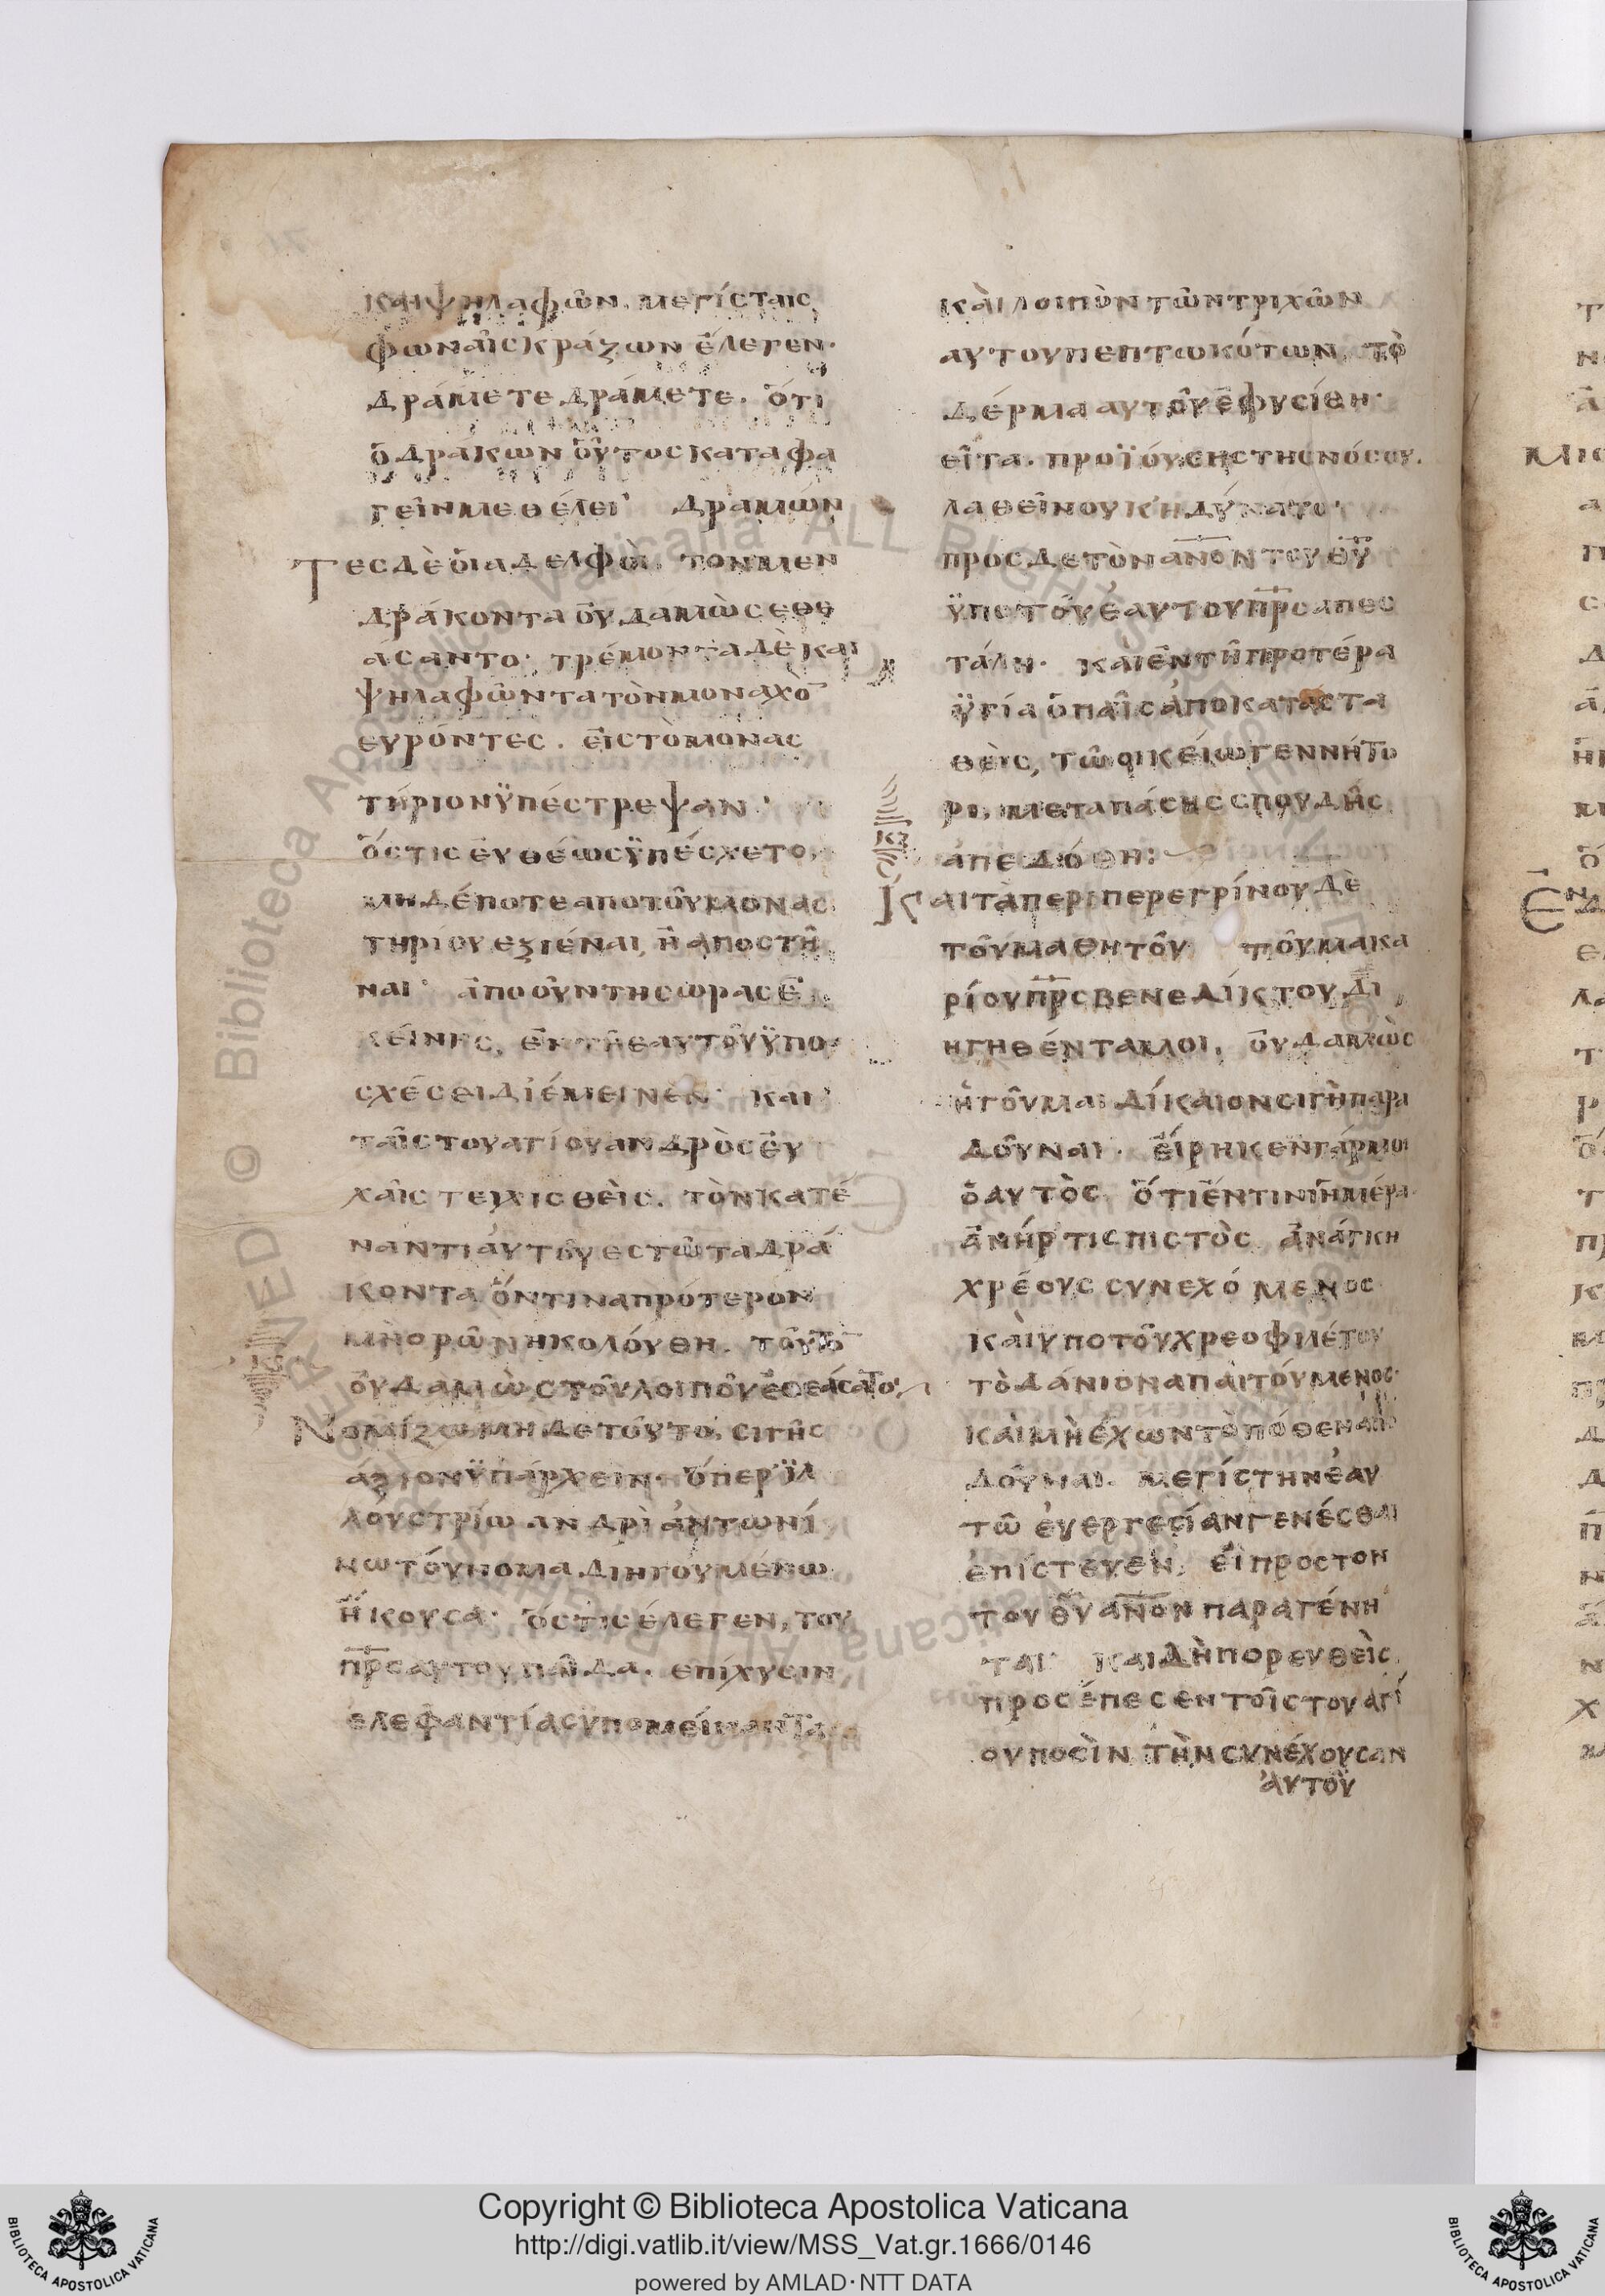 και ψηλαφῶν. μεγίσταις
φωναῖς κράζων ἔλεγεν·
δράμετε δράμετε. ὅτι
ὁ δράκων οὗτος καταφα
γεῖν με θέλει· δραμών
Τες δὲ ὁι ἀδελφοὶ. τον μεν
δράκοντα οὐδαμῶς εθε
άσαντο· τρέμοντα δὲ και
ψηλαφῶντα τὸν μοναχὸ̅
ευρόντες. εἰς τὸ μονας
τήριον ϋπέστρεψαν·
ὅστις εὐθέως ϋπέσχετο,
μηδέποτε απο τοῦ μονας
τηρίου εξιέναι, ἢ αποστῆ
ναι· ἀπο οὖν της ωρας ἐ
κείνης, ἐν τῇ εαυτοῦ ϋπο
σχέσει διέμεινεν· και
ταῖς του αγίου ανδρὸς εὐ
χαῖς τειχισθεὶς. τὸν κατέ
ναντι ἀυτοῦ εστῶτα δρά
κοντα ὅντινα πρότερον
μὴ ορῶν ηκολόυθη. τοῦτο̅
οὐδαμὼς τοῦ λοιποῦ ἐθεάσατο·
κϛ
Νομίζω μηδε τόυτο, σιγῆς
άξιον ϋπάρχειν· ὅπερ ϊλ
λουστρίω ανδρὶ ἀντωνί
νω τόυνομα διηγουμένω
ἤκουσα· ὅστις έλεγεν, του
π̅ρ̅ς αυτου παῖδα. επίχυσιν
ελεφαντίας υπομείναντα
κὰι λοιπὸν τῶν τριχῶν
αυτου πεπτωκότων, τὸ
δέρμα αυτοῦ ἐφυσίθη·
εἶτα. προϊόυσης της νόσου.
λαθεῖν ουκ ἠδύνατο·
προς δε τὸν α̅ν̅ο̅ν του θ̅υ̅
ϋπο τοῦ ἑαυτου π̅ρ̅ς απεσ
τάλη· κὰι ἐν τῆ προτέρα
ϋγία ὁ παῖς ἀποκαταστα
θὲις, τῶ οικείω γεννήτο
ρι, μετα πάσης σπουδῆς
ἀπεδόθη:
κζ
Και τὰ περι περεγρίνου δὲ
τοῦ μαθητοῦ τοῦ μακα
ρίου π̅ρ̅ς βενεδίκτου δι
ηγηθέντα μοι, οὐδαμὼς
ἡγοῦμαι δίκαιον σιγῆ παρα
δοῦναι. εἴρηκεν γάρ μοι
ὁ αυτὸς, ὅτι ἔν τινι ἡμέρα
ἀνήρ τις πιστὸς ἀνάγκη
χρέους συνεχόμενος
κὰι ϋπο τοῦ χρεοφιλέτου
τὸ δάνιον απαιτόυμενος·
κὰι μὴ έχων τὸ πόθεν απο
δοῦναι. μεγίστην ἑαυ
τῶ ἐυεργεσίαν γενέσθαι
ἐπίστευεν, ἐι προς τον
του θ̅υ̅ α̅ν̅ο̅ν παραγένη
ται· και δὴ πορευθεὶς
προσέπεσεν τοῖς του αγί
ου ποσὶν τὴν συνέχουσαν
ἀυτοὺ
Copyright © Biblioteca Apostolica Vaticana
http://digi.vatlib.it/view/MSS_Vat.gr.1666/0146
powered by AMLAD·NTT DATA
BIBLIOTECA APOSTOLICA VATICANA
BIBLIOTECA APOSTOLICA VATICANA